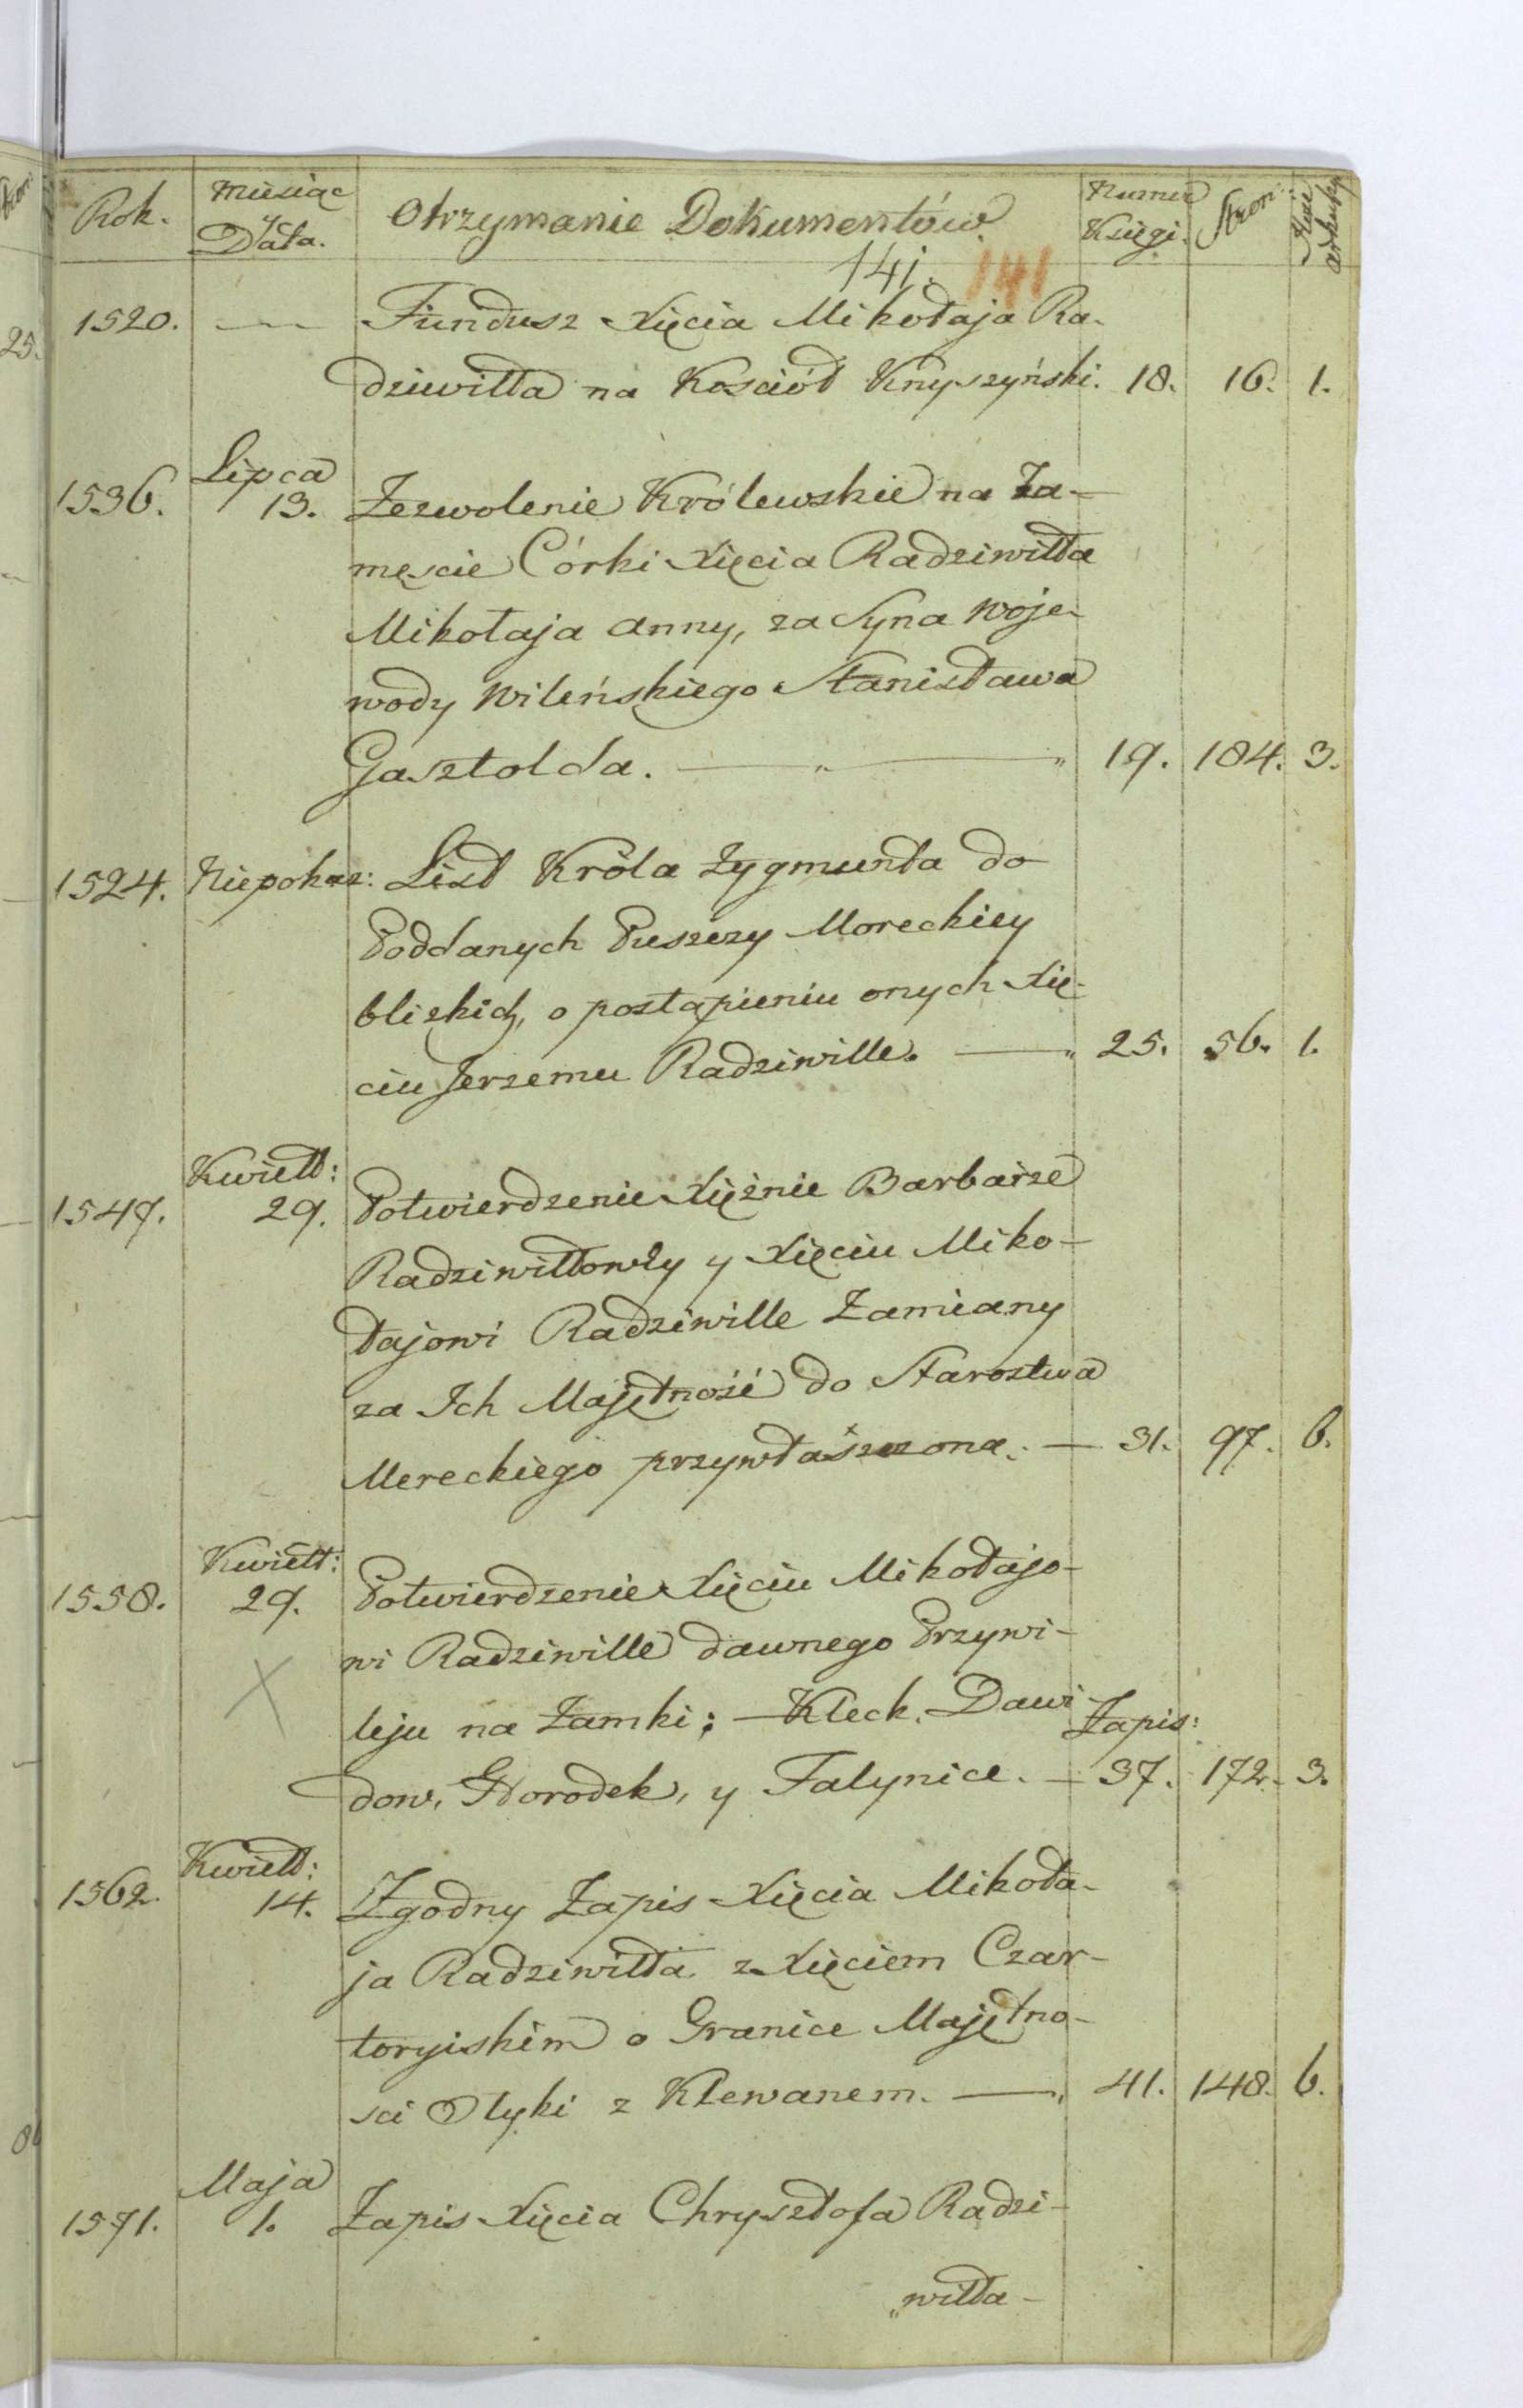 Rok. Miesiąc y Data. Otrzymanie Dokumentów Numer Księgi. Stron: Ilość arkuszy
141. 141
1520. — Fundusz Xięcia Mikołaja Ra-
dziwiłła na Kościół Knyszyński. 18. 16. 1.
Lipca
1536. 13. Zezwolenie Królewskie na Za-
męscie Córki Xięcia Radziwiłła
Mikołaja Anny, za Syna Woje-
wody Wileńskiego Stanisława
Gasztolda. — „ — „ 19. 184. 3.
1524. Niepokaz: List Króla Zygmunta do
Poddanych Puszczy Moreckiey
blizkich, o postąpieniu onych Xię-
ciu Jerzemu Radziwille. — „ 25. 56. 1.
Kwiett:
1547. 29. Potwierdzenie Xiężnie Barbarze
Radziwiłłowży y Xięciu Miko-
łajowi Radziwille Zamiany
za Ich Majętność do Starostwa
Mereckiego przywłaszczona. — 31. 97. 6.
Kwiett:
1558. 29. Potwierdzenie Xięciu Mikołajo-
wi Radziwille dawnego Przywi-
leju na Zamki; — Kleck, Dawi- Zapis:
dow, Horodek, y Falynice. — 37. 172. 3.
Kwiett:
1562. 14. Zgodny Zapis Xięcia Mikoła-
ja Radziwiłła z Xięciem Czar-
toryiskim o Granice Majętno-
sci Ołyki z Klewanem. — „ 41. 148. 6.
Maja
1571. 1. Zapis Xięcia Chrysztofa Radzi-
„wiłła-